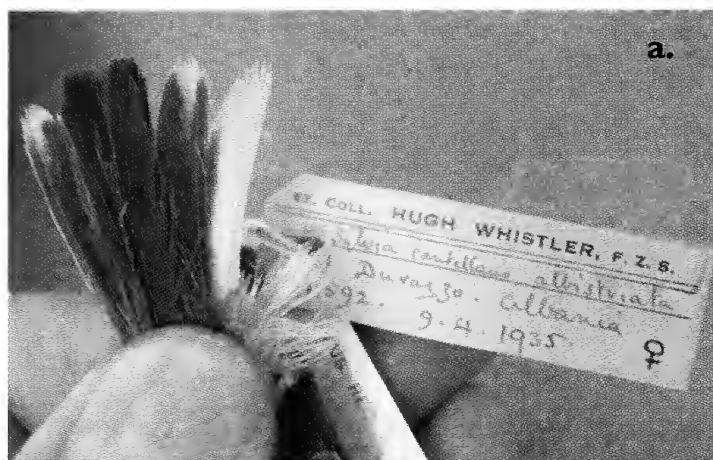 a.
EX. COLL. HUGH WHISTLER, F. Z. S.
cantillans albistriata
Durazzo. Albania
592. 9. 4. 1935
♀